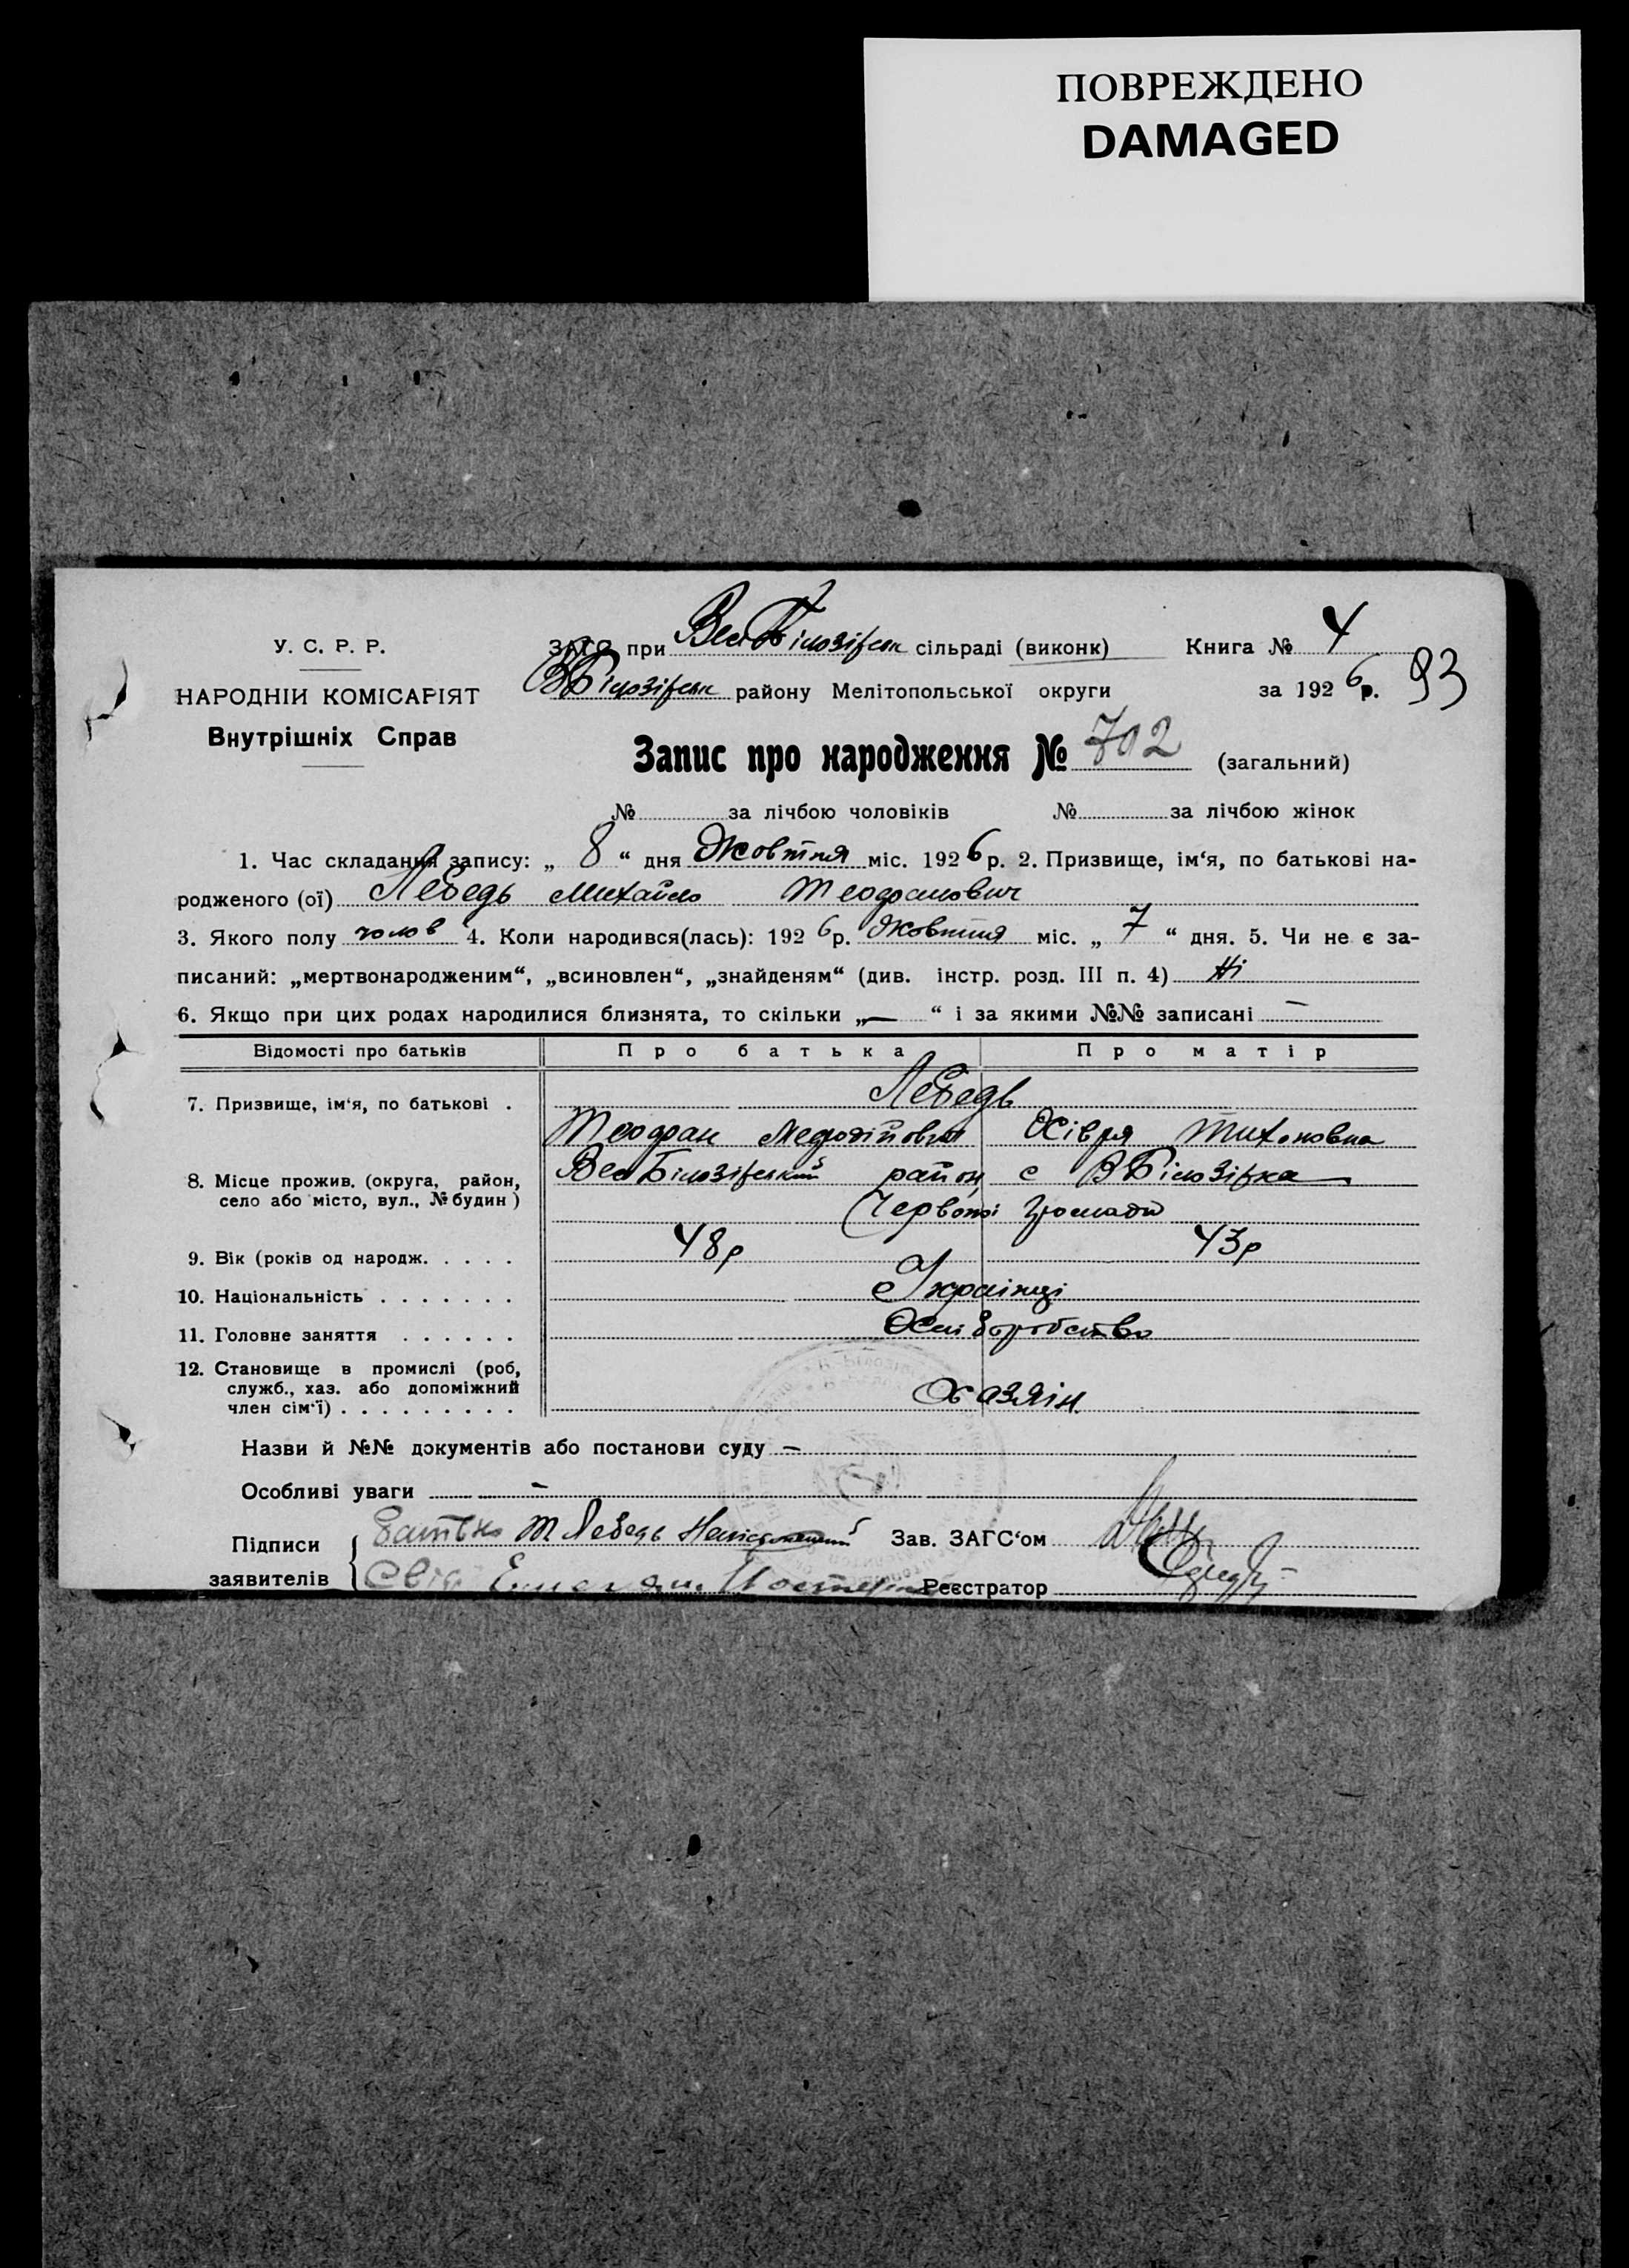 ПОВРЕЖДЕНО
DAMAGED
У. С. Р. Р.
НАРОДНІЙ КОМІСАРІЯТ
Внутрішніх Справ
ЗАГС при Вел Білозірськ сільраді (виконк) Книга № 4
ВБілозірськ району Мелітопольської округи за 1926р. 93
Запис про народження № 702 (загальний)
№ за лічбою чоловіків № за лічбою жінок
1. Час складання запису: „ 8 “ дня Жовтня міс. 1926р. 2. Призвище, ім‘я, по батькові на-
родженого (ої) Лебедь Михайло Теофанович
3. Якого полу чолов 4. Коли народився(лась): 1926р. Жовтня міс. „ 7 “ дня. 5. Чи не є за-
писаний: „мертвонародженим“, „всиновлен“, „знайденям“ (див. інстр. розд. III п. 4) Ні
6. Якщо при цих родах народилися близнята, то скільки „—“ і за якими №№ записані —
Відомості про батьків Про батька Про матір
7. Призвище, ім‘я, по батькові . Лебедь
Теофан Мефодійович Тихоновна
8. Місце прожив. (округа, район, село або місто, вул., № будин ) ВелБілозірський район с ВБілозірка
Червоної громади
9. Вік (років од народж. . . . . 48р 43р
10. Національність . . . . . . . Українці
11. Головне заняття . . . . . .
12. Становище в промислі (роб,
служб., хаз. або допоміжний
член сім‘ї) . . . . . . . . . Хазяін
Назви й №№ документів або постанови суду —
Особливі уваги —
Підписи Батько Т Лебедь Зав. ЗАГС‘ом
заявителів Свід. Реєстратор